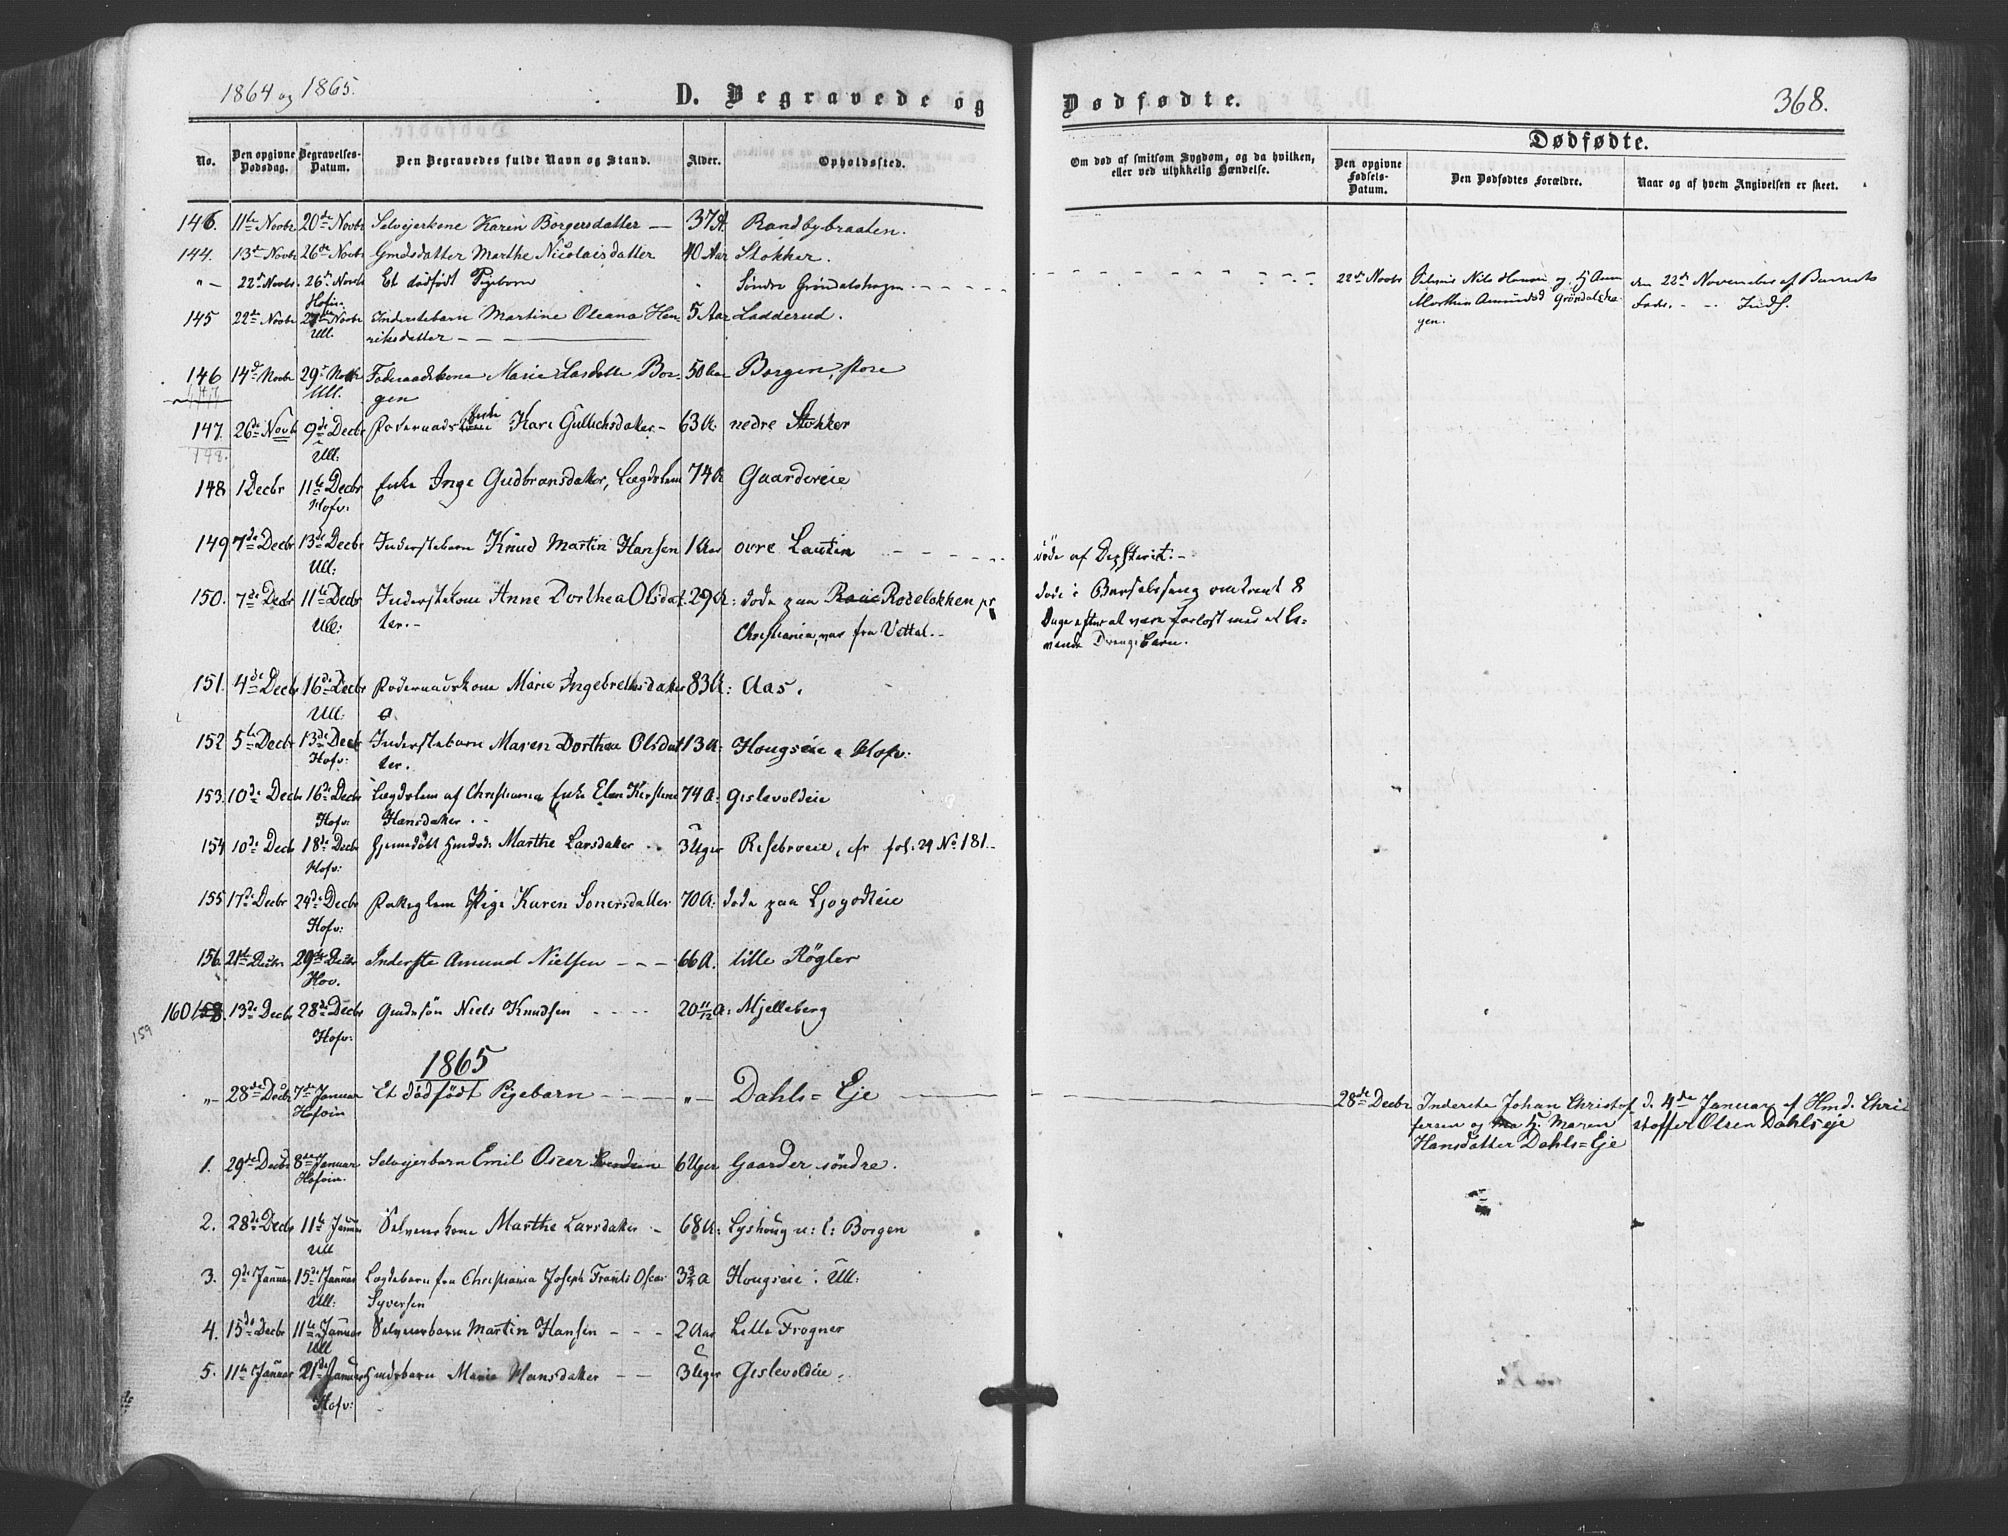 1864 og 1865.
D. Begravede og
Dødfødte.
368.
No.
Den opgivne Dødsdag.
Begravelses-Datum.
Den Begravedes fulde Navn og Stand.
Alder.
Opholdssted.
Om død af smitsom Sygdom, og da hvilken, eller ved ulykkelig Hændelse.
Dødfødte.
Den opgivne Fødsels-Datum.
Den Dødfødtes Forældre.
Naar og af hvem Angivelsen er skeet.
146. 11te Novbr 20de Novbr Selveierkone Karen Borgersdatter — 37 A. Randbybraaten.
144. 13de Novbr 26de Novbr Gmdsdatter Marthe Nicolaisdatter 40 Aar Stokker.
" — 22de Novbr. 26de Novbr Et dødfødt Pigebarn " Søndre Grøndalshagen 22de Novbr Nils Hansen og H. Ann den 22de November af Barnets
Hofin. Marthea Amundsd Grøndalsha- Fader
145 22de Novbr Novbr Inderstebarn Martine Oleana Hen- 5 Aar Ladderud. gen.
Ull. riksdatter
146 14de Novbr 29de Novbr Føderaadskone Marie Larsdatte Bor- 50 Aar Borgen, store
Ull. gen
147. 26de Novb 9de Decbr Føderaads Enke Kari Gullichsdatter - 63 A. nedre Stokker
148. Ull:
148 1 Decbr 11te Decbr Enke Inge Gudbransdatter, Lægdslem 74 A Gaardereie
Hofv:
149 7de Decbr 13de Decbr Inderstebarn Knud Martin Hansen 1 Aar øvre Lautin døde af
Ull:
150. 7de Decbr 11te Decbr Inderstekone Anne Dorthea Olsdat- 29 A: døde paa Rodeløkken pr døde i Barselseng omtrent 8
Ull: ter.- Christiania, var fra Vettal. Dage efter at være forløst med et le-
vende Drengebarn.
151. 4de Decbr 16de Decbr Føderaadskone Marie Ingebrethsdatter 83 A: Aas.
Ull:
152 5te Decbr 13de Decbr Inderstebarn Maren Dorthea Olsdat 13 A: Hougseie Hofv:
Hofv: ter.
153. 10de Decbr 16de Decbr Lægdslem af Christiania Enke Elen Kirstine 74 A: Gislevoldeie
Hofv: Hansdatter
154 10de Decbr 18de Decbr hjemmedøbt Marthe Larsdatter 3 Uger Risebroeie, cfr fol: 29 No 181.
Hofv:
155 17de Decbr 24de Decbr Pige Karen Simersdatter 70 A: døde paa
Hofv:
156. 21de Decbr 29de Decbr Inderste Amund Nielsen — — — 66 A. lille Røgler
Hov.
160 158. 13de Decbr 28de Decbr Gmdssøn Niels Knudsen 20 11/12 A: Mjelleberg
159 Hofv:
1865
" — 28de Decbr 7de Januar Et dødfødt Pigebarn " — Dahls=Eje 28de Decbr Inderste Johan Christof d. 4de Januar af Hmd. Chri
Hofvin fersen og H. Maren stoffer Olsen Dahlseje
Hansdatter Dahls=Eje
1. 29de Decbr 8de Januar Selvejerbarn Emil Oscar 6 Uger Gaarder søndre.
Hofvin.
2. 28de Decbr 11te Januar Selveierkone Marthe Larsdatter - 68 A: Lyshoug u: l: Borgen
Ull
3. 9de Januar 15de Januar Lægdsbarn fra Christiania Joseph Frants Oscar 3 3/4 A Hougseie i Ull:
Ull: Syversen
4. 15de Decbr 11te Januar Selveierbarn Martin Hansen - - - 2 Aar Lille Frogner
Ull
5. 11te Januar 21de Januar Hmdsbarn Marie Hansdatter — — 3 Uger Gislevoldeie.
Hofv: